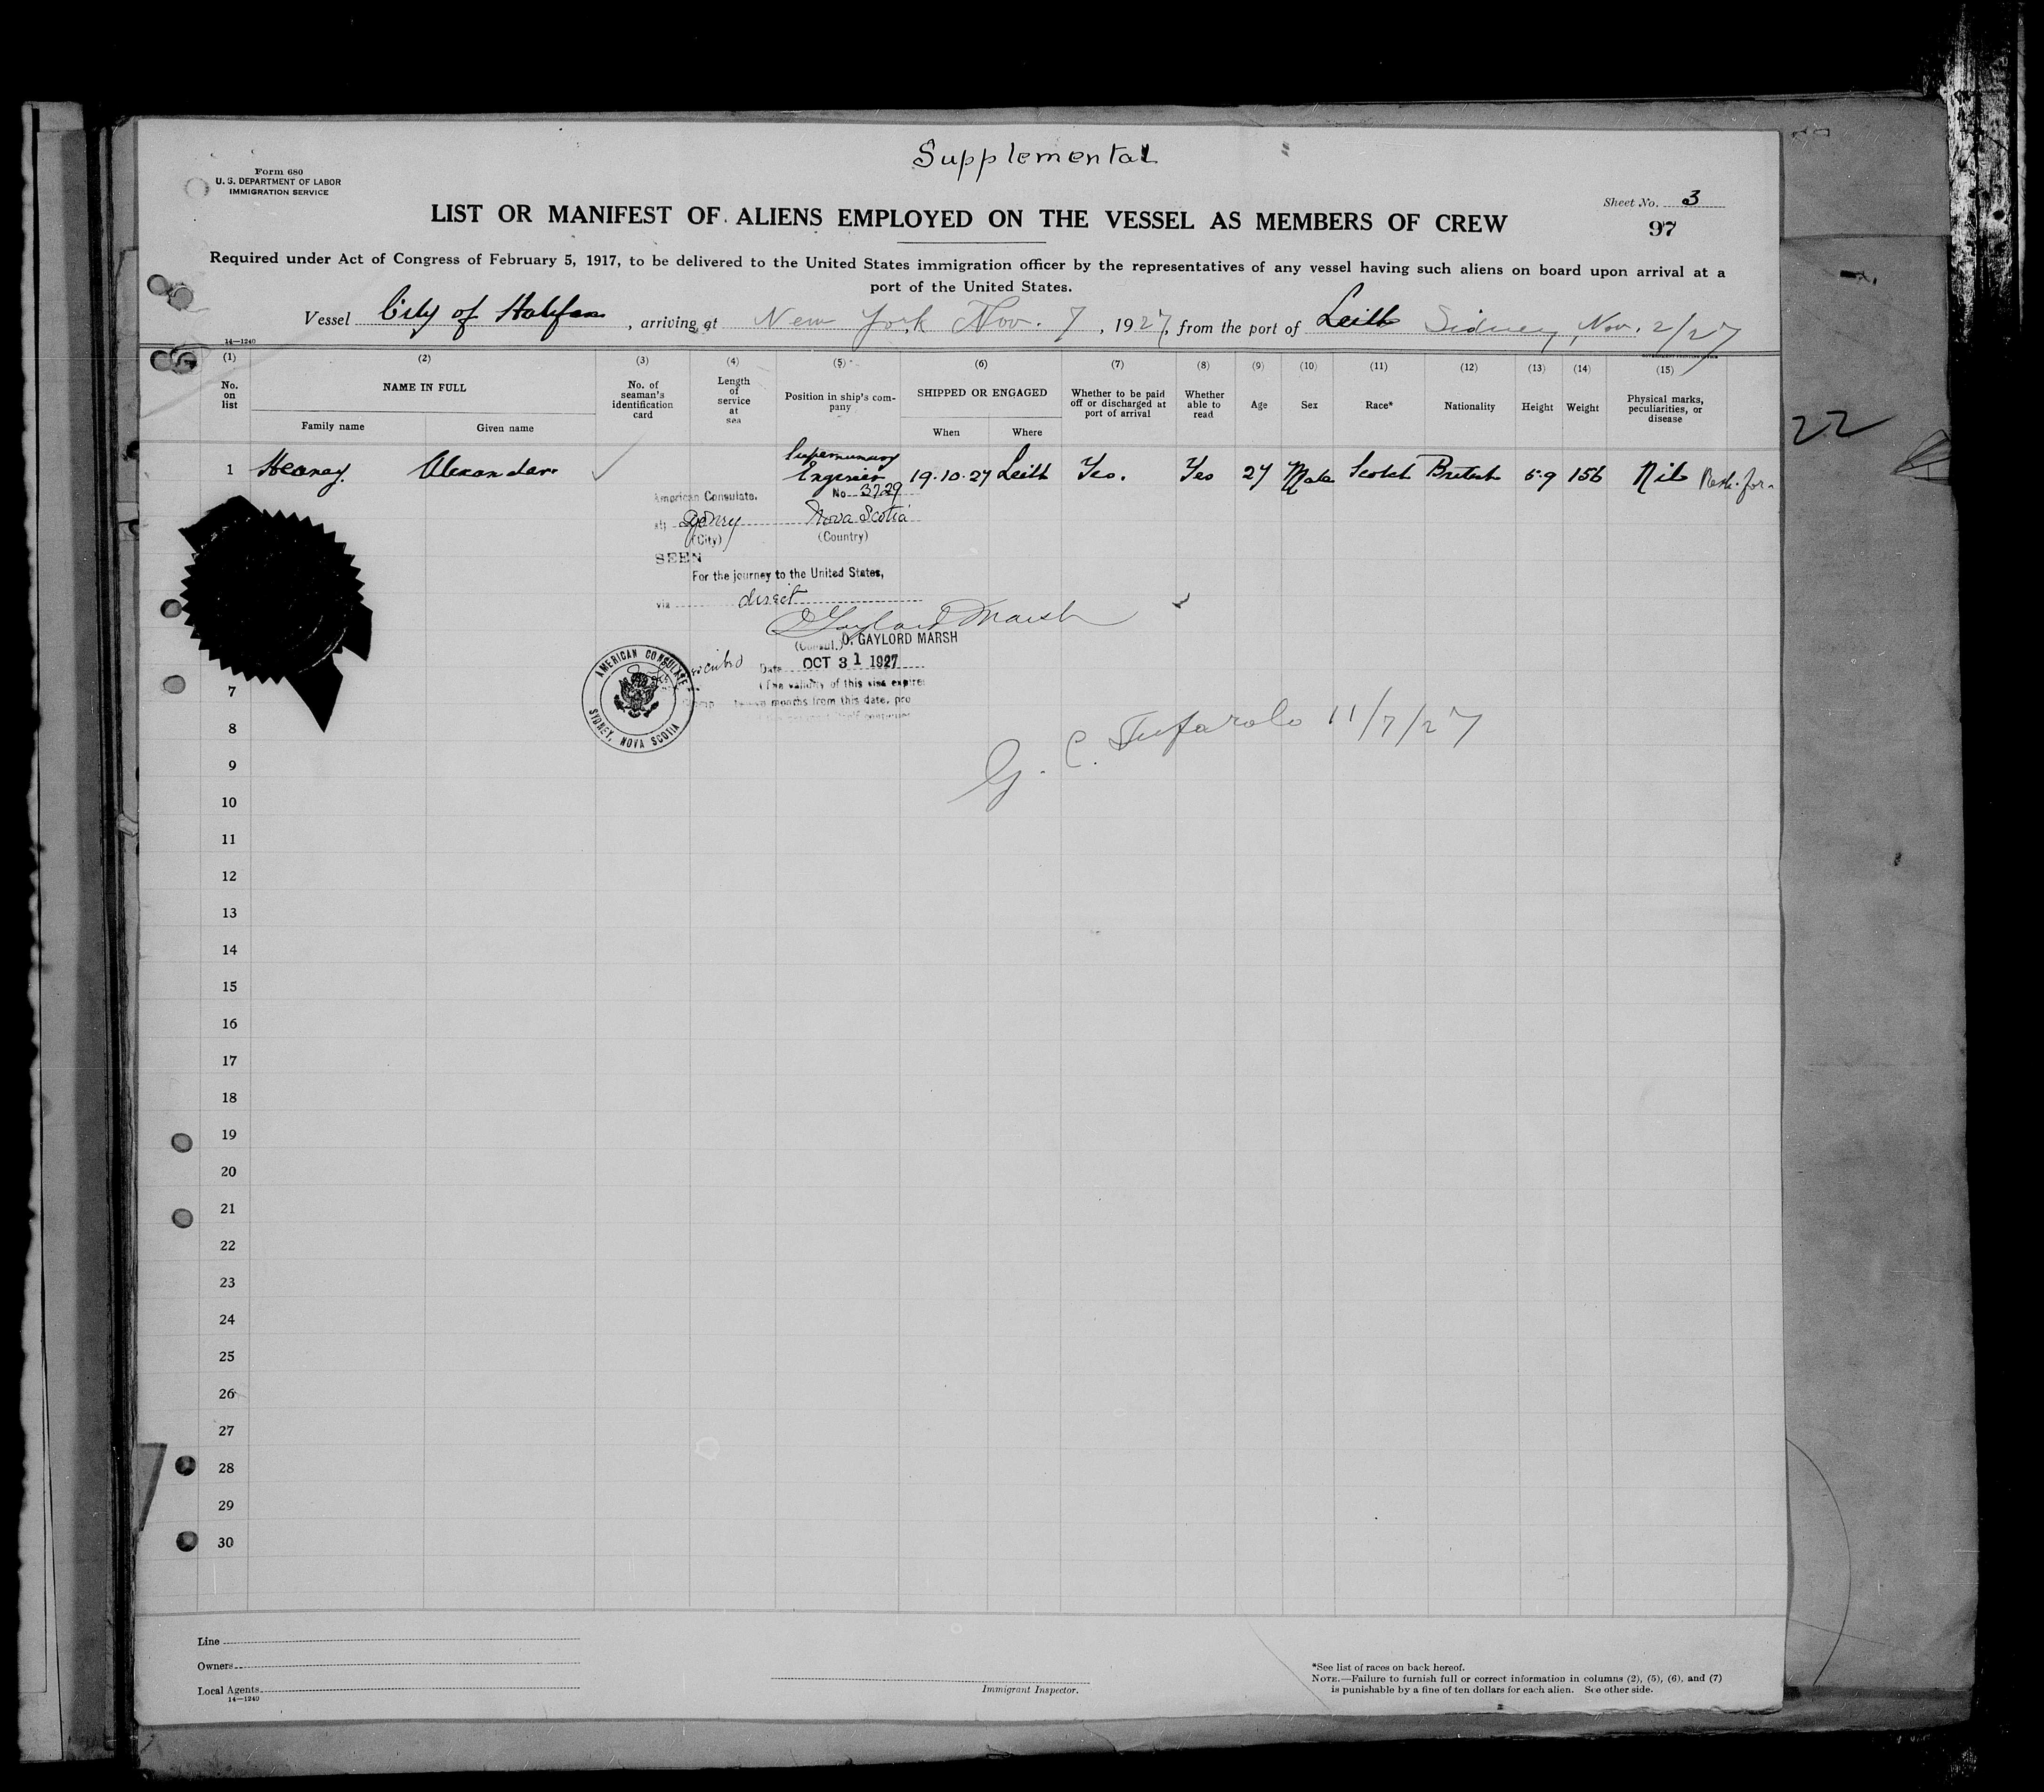 Supplemental
Form 680
U. S. DEPARTMENT OF LABOR
IMMIGRATION SERVICE
Sheet No. 3
LIST OR MANIFEST OF ALIENS EMPLOYED ON THE VESSEL AS MEMBERS OF CREW
97
Required under Act of Congress of February 5, 1917, to be delivered to the United States immigration officer by the representatives of any vessel having such aliens on board upon arrival at a
port of the United States.
Vessel City of Halifax, arriving at New York Nov. 7, 1927, from the port of Leith Sidney, Nov. 2/27
14—1240
(1) (2) (3) (4) (5) (6) (7) (8) (9) (10) (11) (12) (13) (14) (15)
No. on list
NAME IN FULL
Family name
Given name
No. of seaman's identification card
Length of service at sea
Position in ship's company
SHIPPED OR ENGAGED
When
Where
Whether to be paid off or discharged at port of arrival
Whether able to read
Age
Sex
Race*
Nationality
Height
Weight
Physical marks, peculiarities, or disease
22
1 Heaney. Alexander. Supernumary Engineer 19.10.27 Leith Yes. Yes 27 Male Scotch British 5.9 156 Nil
American Consulate. No 3729
at Sydney Nova Scotia
(City) (Country)
SEEN
For the journey to the United States,
via direct
O Gaylord Marsh
(Consul.) O. GAYLORD MARSH
Date OCT 31 1927
(The validity of this visa expires
months from this date, pro
AMERICAN CONSULATE
SYDNEY, NOVA SCOTIA
G. C. Tufarolo 11/7/27
7
8
9
10
11
12
13
14
15
16
17
18
19
20
21
22
23
24
25
26
27
28
29
30
Line
Owners
Local Agents
14—1240
Immigrant Inspector.
*See list of races on back hereof.
NOTE.—Failure to furnish full or correct information in columns (2), (5), (6), and (7)
is punishable by a fine of ten dollars for each alien. See other side.